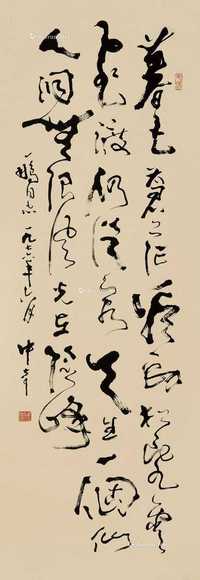 暮色蒼茫看勁松亂雲
飛渡仍從容天生一個仙
人洞無限風光在險峰
鵬同志一九七六年